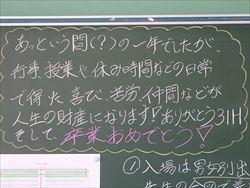 あっという間(?)の一年でしたが、
行事、授業や休み時間などの日常
で得た喜び、苦労、仲間などが
人生の財産になりますずありがとう31H
そして、卒業おめでとう!
①入場は男女別出